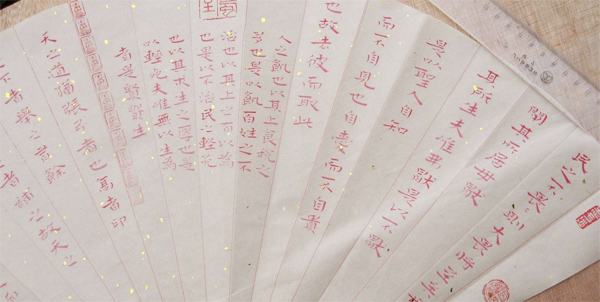 民之不畏=則大畏將至矣
閘其所居毋猒
其所生夫唯弗猒是以不猒
是以聖人自知
而不自見也自愛而不自貴
也故去彼而取此
人之飢也以其上取食之
多也是以飢百姓之不
治也以其上之有以為
也是以不治民之輕死
也以其求生之厚也是
以輕死夫唯無以生為
者是賢貴生
天之道猶張弓者也高者印
下者舉之有餘
者補之故天之